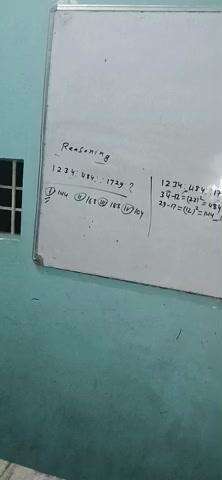 Reasoning
1234 : 484 :: 1729 ?
① 144 ② 168 ③ 188 ④ 164
1234 : 484 :: 17
34-12=(22)²=484
29-17=(12)²=144